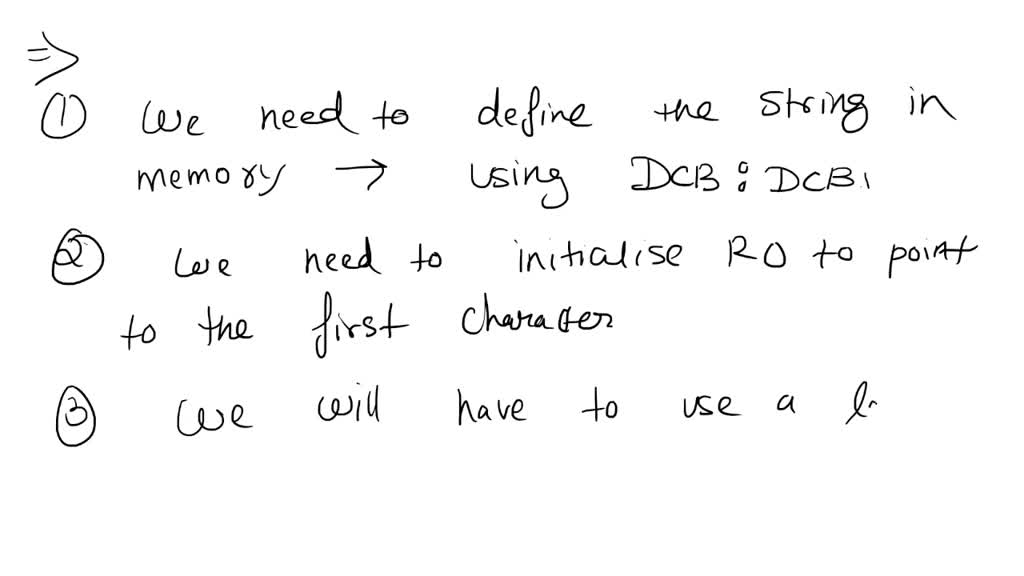 ⇒
① We need to define the string in
memory → using DCB : DCB
② We need to initialise R0 to point
to the first character
③ We will have to use a